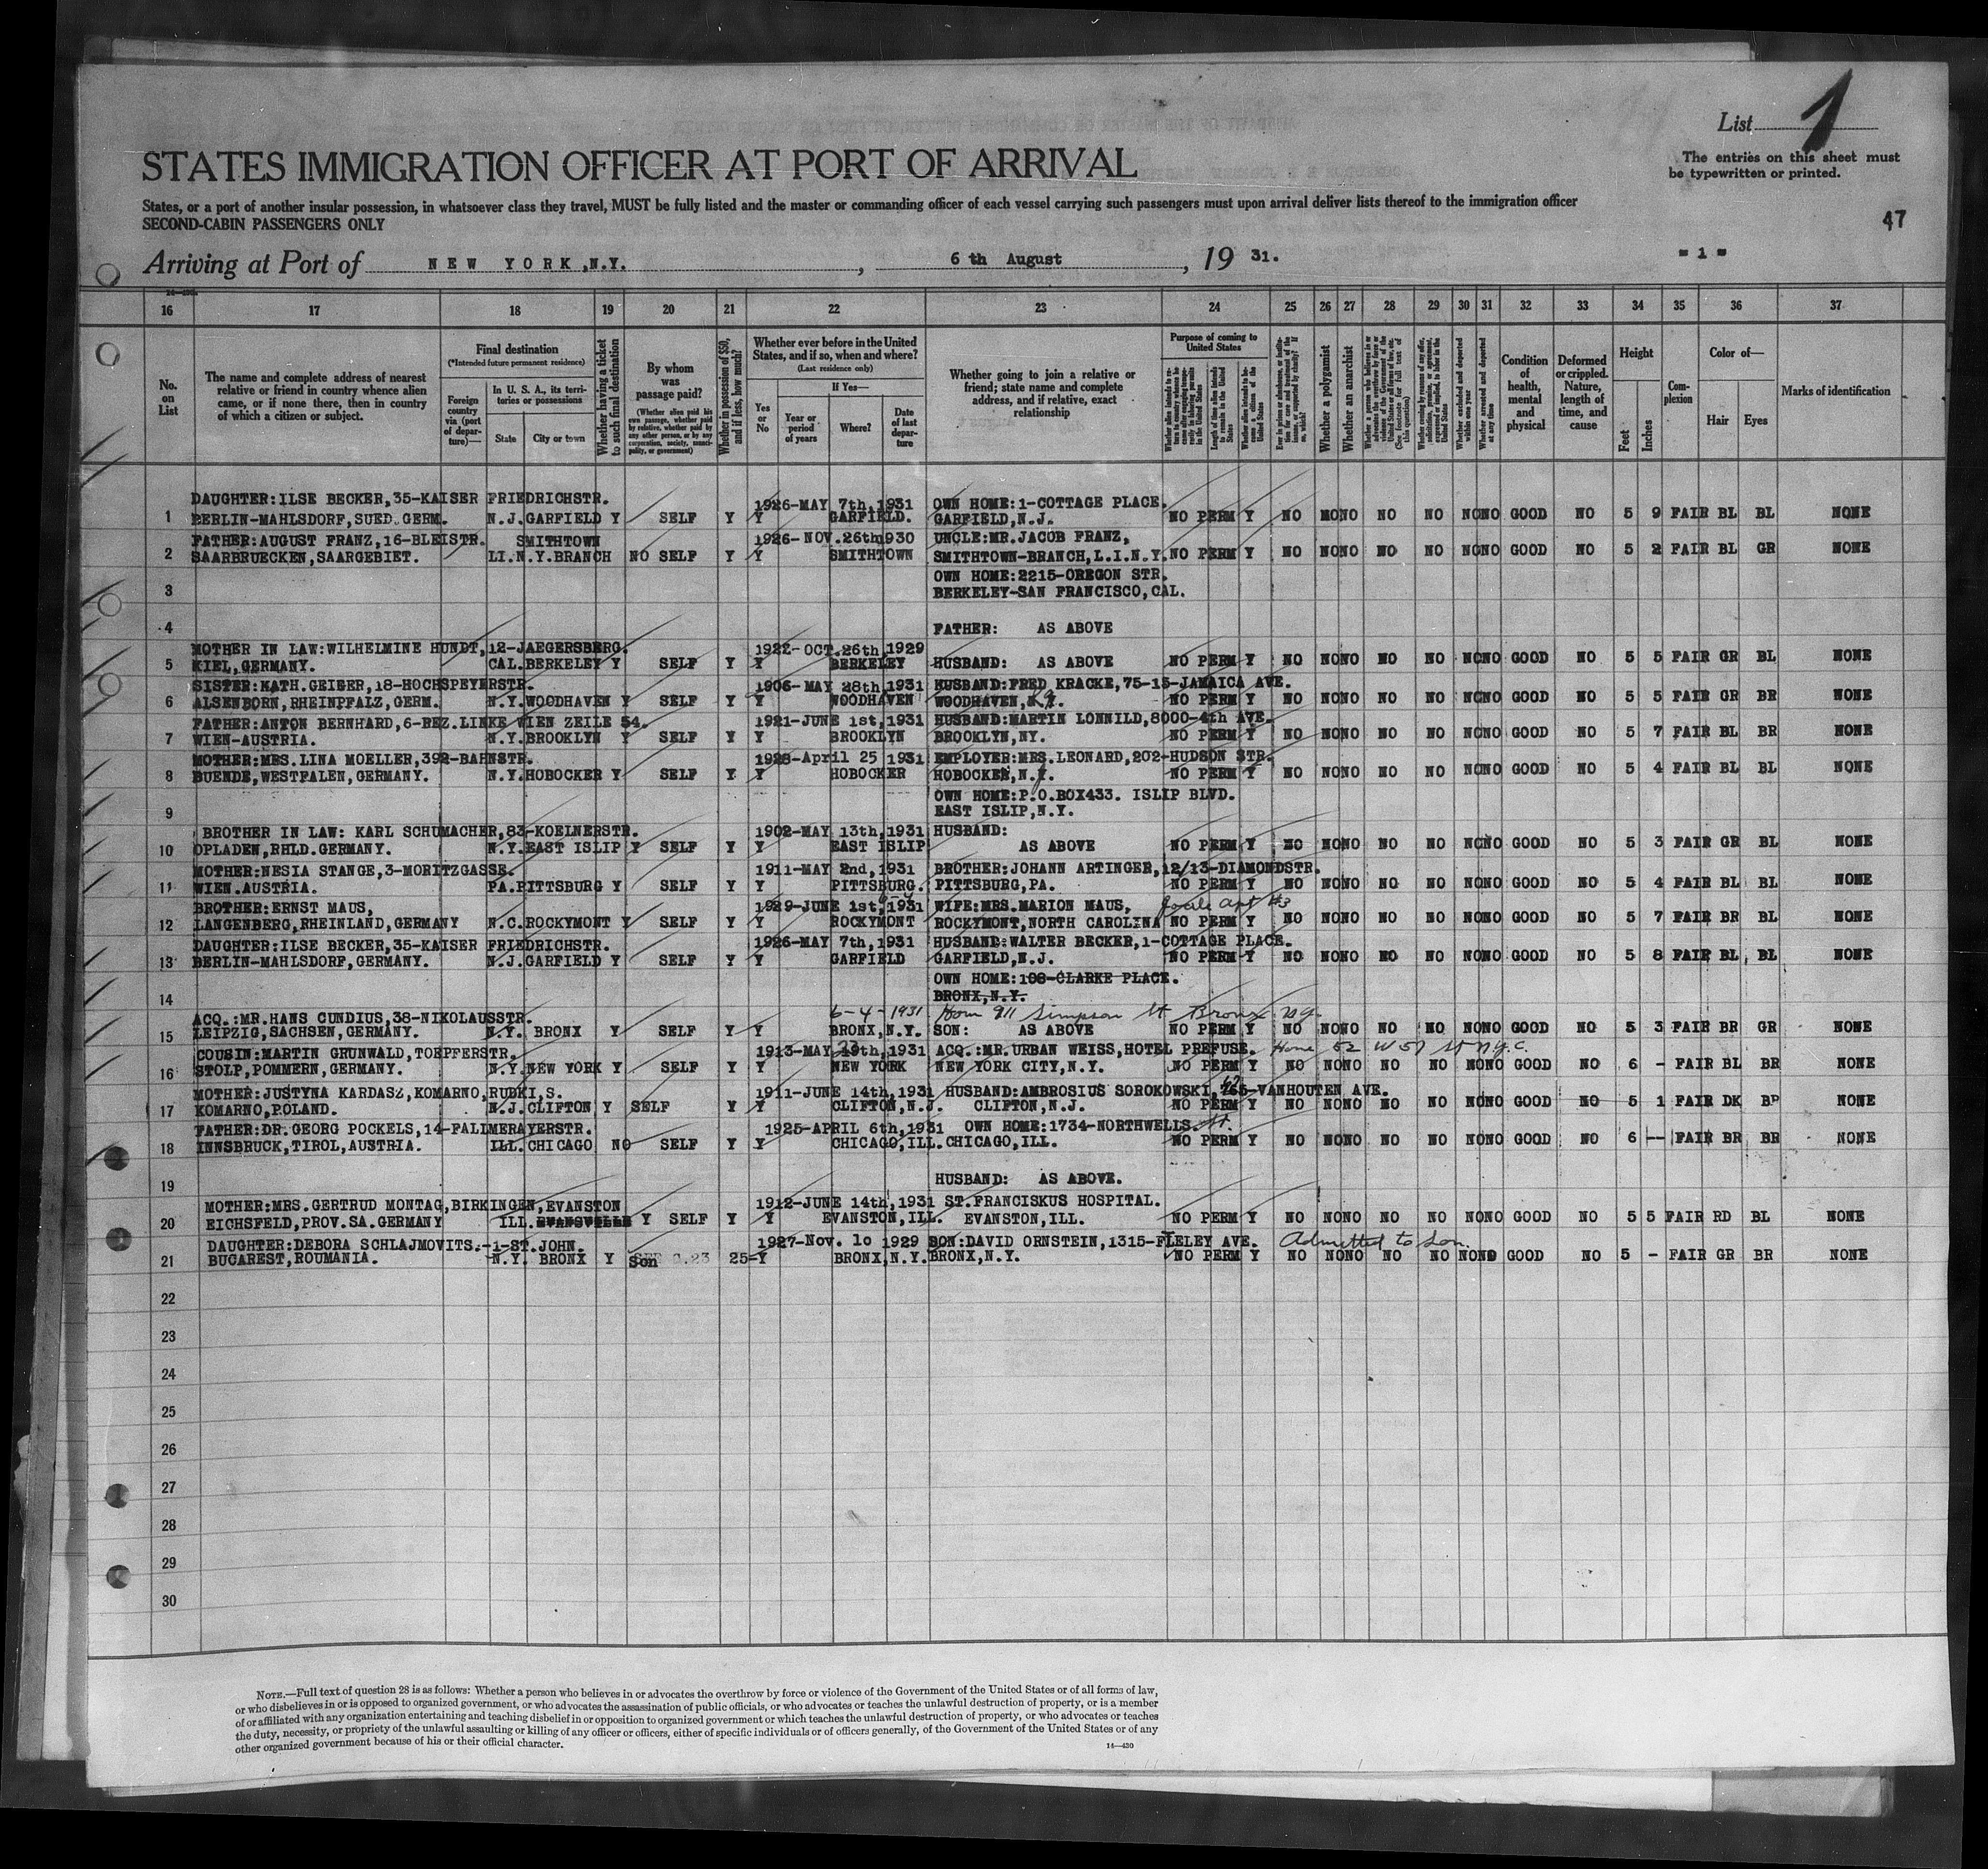 List 1
STATES IMMIGRATION OFFICER AT PORT OF ARRIVAL
The entries on this sheet must
be typewritten or printed.
States, or a port of another insular possession, in whatsoever class they travel, MUST be fully listed and the master or commanding officer of each vessel carrying such passengers must upon arrival deliver lists thereof to the immigration officer
SECOND-CABIN PASSENGERS ONLY
47
Arriving at Port of NEW YORK, N.Y. , 6 th August , 19 31.
= 1 =
16 17 18 19 20 21 22 23 24 25 26 27 28 29 30 31 32 33 34 35 36 37
No. on List
The name and complete address of nearest relative or friend in country whence alien came, or if none there, then in country of which a citizen or subject.
Final destination
(*Intended future permanent residence)
Foreign country via (port of departure)—
In U. S. A., its territories or possessions
State
City or town
Whether having a ticket to such final destination
By whom was passage paid?
(Whether alien paid his own passage, whether paid by relative, whether paid by any other person, or by any corporation, society, municipality, or government)
Whether in possession of $50, and if less, how much?
Whether ever before in the United States, and if so, when and where?
(Last residence only)
Yes or No
If Yes—
Year or period of years
Where?
Date of last departure
Whether going to join a relative or friend; state name and complete address, and if relative, exact relationship
Purpose of coming to United States
Length of time alien intends to remain in the United States
Whether alien intends to become a citizen of the United States
Whether a polygamist
Whether an anarchist
Whether excluded and deported within one year
Whether arrested and deported at any time
Condition of health, mental and physical
Deformed or crippled. Nature, length of time, and cause
Height
Feet
Inches
Complexion
Color of—
Hair
Eyes
Marks of identification
DAUGHTER:ILSE BECKER,35-KAISER FRIEDRICHSTR. 1926-MAY 7th,1931 OWN HOME:1-COTTAGE PLACE.
1 BERLIN-MAHLSDORF,SUED.GERM. N.J.GARFIELD Y SELF Y Y GARFIELD. GARFIELD,N.J. NO PERM Y NO NONO NO NO NONO GOOD NO 5 9 FAIR BL BL NONE
FATHER:AUGUST FRANZ,16-BLEISTR. SMITHTOWN 1926-NOV.26th1930 UNCLE:MR.JACOB FRANZ,
2 SAARBRUECKEN,SAARGEBIET. LI.N.Y.BRANCH NO SELF Y Y SMITHTOWN SMITHTOWN-BRANCH,L.I.N.Y. NO PERM Y NO NONO NO NO NONO GOOD NO 5 2 FAIR BL GR NONE
OWN HOME:2215-OREGON STR.
3 BERKELEY-SAN FRANCISCO,CAL.
4 FATHER: AS ABOVE
MOTHER IN LAW:WILHELMINE HUNDT,12-JAEGERSBERG. 1922-OCT.26th,1929
5 KIEL,GERMANY. CAL.BERKELEY Y SELF Y Y BERKELEY HUSBAND: AS ABOVE NO PERM Y NO NONO NO NO NONO GOOD NO 5 5 FAIR GR BL NONE
SISTER:KATH.GEIGER,18-HOCHSPEYERSTR. 1906-MAY 28th,1931 HUSBAND:FRED KRACKE,75-15-JAMAICA AVE.
6 ALSENBORN,RHEINPFALZ,GERM. N.Y.WOODHAVEN Y SELF Y Y WOODHAVEN WOODHAVEN, NO PERM Y NO NONO NO NO NONO GOOD NO 5 5 FAIR GR BR NONE
FATHER:ANTON BERNHARD,6-BEZ.LINKE WIEN ZEILE 54. 1921-JUNE 1st,1931 HUSBAND:MARTIN LONNILD,8000-4th AVE.
7 WIEN-AUSTRIA. N.Y.BROOKLYN Y SELF Y Y BROOKLYN BROOKLYN,NY. NO PERM Y NO NONO NO NO NONO GOOD NO 5 7 FAIR BL BR NONE
MOTHER:MRS.LINA MOELLER,392-BAHNSTR. 1928-April 25 1931 EMPLOYER:MRS.LEONARD,202-HUDSON STR.
8 BUENDE,WESTFALEN,GERMANY. N.Y.HOBOCKER Y SELF Y Y HOBOCKER HOBOCKEN,N. NO PERM Y NO NONO NO NO NONO GOOD NO 5 4 FAIR BL BL NONE
OWN HOME:P.O.BOX433. ISLIP BLVD.
9 EAST ISLIP,N.Y.
BROTHER IN LAW: KARL SCHUMACHER,83-KOELNERSTR. 1902-MAY 13th,1931 HUSBAND:
10 OPLADEN,RHLD.GERMANY. N.Y.EAST ISLIP Y SELF Y Y EAST ISLIP AS ABOVE NO PERM Y NO NONO NO NO NONO GOOD NO 5 3 FAIR GR BL NONE
MOTHER:NESIA STANGE,3-MORITZGASSE. 1911-MAY 2nd,1931 BROTHER:JOHANN ARTINGER,12/13-DIAMONDSTR.
11 WIEN.AUSTRIA. PA.PITTSBURG Y SELF Y Y PITTSBURG. PITTSBURG,PA. NO PERM Y NO NONO NO NO NONO GOOD NO 5 4 FAIR BL BL NONE
BROTHER:ERNST MAUS, 1929-JUNE 1st,1931 WIFE:MRS.MARION MAUS, apt #3
12 LANGENBERG,RHEINLAND,GERMANY N.C.ROCKYMONT Y SELF Y Y ROCKYMONT ROCKYMONT,NORTH CAROLINA NO PERM Y NO NONO NO NO NONO GOOD NO 5 7 FAIR BR BL NONE
DAUGHTER:ILSE BECKER,35-KAISER FRIEDRICHSTR. 1926-MAY 7th,1931 HUSBAND:WALTER BECKER,1-COTTAGE PLACE.
13 BERLIN-MAHLSDORF,GERMANY. N.J.GARFIELD Y SELF Y Y GARFIELD GARFIELD,N.J. NO PERM Y NO NONO NO NO NONO GOOD NO 5 8 FAIR BL BL NONE
OWN HOME:108-CLARKE PLACE.
14 BRONX,N.Y.
6-4-1931 Home 911 Simpson St Bronx NY.
ACQ.:MR.HANS CUNDIUS,38-NIKOLAUSSTR.
15 LEIPZIG,SACHSEN,GERMANY. N.Y. BRONX Y SELF Y Y BRONX,N.Y. SON: AS ABOVE NO PERM Y NO NONO NO NO NONO GOOD NO 5 3 FAIR BR GR NONE
COUSIN:MARTIN GRUNWALD,TOEPFERSTR. 1913-MAY 1931 ACQ.:MR.URBAN WEISS,HOTEL PREFUSE. Home 52 W 57 St N.Y.C.
16 STOLP,POMMERN,GERMANY. N.Y.NEW YORK Y SELF Y Y NEW YORK NEW YORK CITY,N.Y. NO PERM Y NO NONO NO NO NONO GOOD NO 6 - FAIR BL BR NONE
MOTHER:JUSTYNA KARDASZ,KOMARNO,RUDKI,S. 1911-JUNE 14th,1931 HUSBAND:AMBROSIUS SOROKOWSKI, VANHOUTEN AVE.
17 KOMARNO,POLAND. N.J.CLIFTON Y SELF Y Y CLIFTON,N.J. CLIFTON,N.J. NO PERM Y NO NONO NO NO NONO GOOD NO 5 1 FAIR DK BR NONE
FATHER:DR.GEORG POCKELS,14-FALLMERAYERSTR. 1925-APRIL 6th,1931 OWN HOME:1734-NORTHWELLS. St.
18 INNSBRUCK,TIROL,AUSTRIA. ILL.CHICAGO NO SELF Y Y CHICAGO,ILL. CHICAGO,ILL. NO PERM Y NO NONO NO NO NONO GOOD NO 6 -- FAIR BR BR NONE
19 HUSBAND: AS ABOVE.
MOTHER:MRS.GERTRUD MONTAG,BIRKINGEN,EVANSTON 1912-JUNE 14th,1931 ST.FRANCISKUS HOSPITAL.
20 EICHSFELD,PROV.SA.GERMANY ILL.EVANSVILLE Y SELF Y Y EVANSTON,ILL. EVANSTON,ILL. NO PERM Y NO NONO NO NO NONO GOOD NO 5 5 FAIR RD BL NONE
DAUGHTER:DEBORA SCHLAJMOVITS.-1-ST.JOHN. 1927-Nov. 1o 1929 SON:DAVID ORNSTEIN,1315-FTELEY AVE. Admitted to Son.
21 BUCAREST,ROUMANIA. N.Y. BRONX Y Son 25= Y BRONX,N.Y. BRONX,N.Y. NO PERM Y NO NONO NO NO NONO GOOD NO 5 - FAIR GR BR NONE
22
23
24
25
26
27
28
29
30
NOTE.—Full text of question 28 is as follows: Whether a person who believes in or advocates the overthrow by force or violence of the Government of the United States or of all forms of law,
or who disbelieves in or is opposed to organized government, or who advocates the assassination of public officials, or who advocates or teaches the unlawful destruction of property, or is a member
of or affiliated with any organization entertaining and teaching disbelief in or opposition to organized government or which teaches the unlawful destruction of property, or who advocates or teaches
the duty, necessity, or propriety of the unlawful assaulting or killing of any officer or officers, either of specific individuals or of officers generally, of the Government of the United States or of any
other organized government because of his or their official character.
14—430